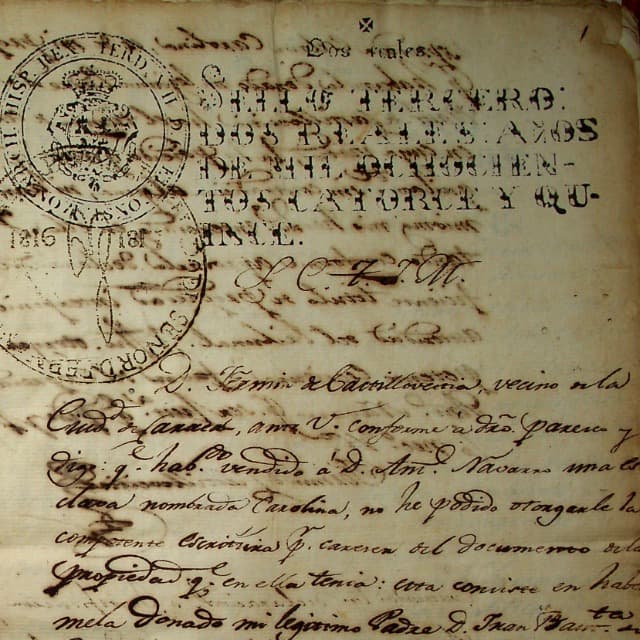 1
Dos reales.
SELLO TERCERO:
DOS REALES: AÑOS
DE MIL OCHOCIEN-
TOS CATORCE Y QU-
INCE.
HISP. REX FERD. VII D. G. ET CONST. MONARCH.
1816 181
SEÑOR D. FER
S. C. Y J. M.
D. Fermin de Castilloveitia, vecino de la
Ciud.d de Caracas, ante V. conforme á dro. paresco y
digo: q.e hab.do vendido á D. Ant.o Navarro una es
clava nombrada Carolina, no he podido otorgarle la
competente escritura p.r carecer del documento de la
propiedad q.e en ella tenia: esta consiste en haber
mela donado mi legitimo Padre D. Juan Baut.ta